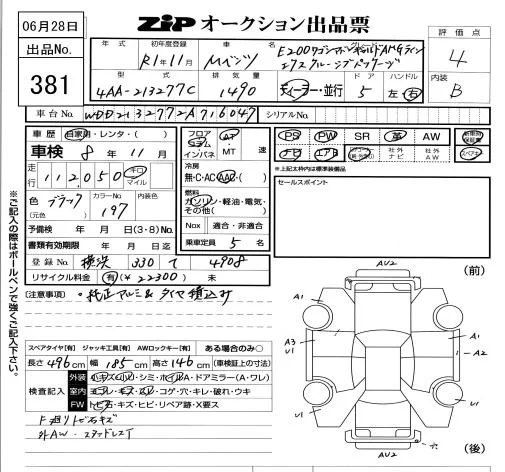 06月28日
ZIP オークション出品票
出品No.
381
年式 初年度登録 車名 グレード
R1年11月 Mベンツ E200ワゴン アバンギャルド AMGライン
エクスクルーシブパッケージ
型式 排気量 ドア ハンドル
4AA-213277C 1490 ディーラー・並行 5 左・右
評価点
4
内装
B
車台No. WDD2132772A716047 シリアルNo.
車歴 自家用・レンタ・( )
車検 8年11月
走行 112,050 キロ マイル
色 ブラック (元色) カラーNo. 197 内装色
予備検 年 月 日(3・8)No.
書類有効期限 年 月 日迄
登録No. 横浜 330 て 4908
リサイクル料金 有(¥22300) 未
フロア コラム インパネ AT・MT 速
冷房
無・C・AC・AAC・( )
燃料
ガソリン・軽油・電気・その他( )
Nox 適合・非適合
乗車定員 5名
PS PW SR 革 AW 新車時保証書
ナビ エアB 社外ナビ 社外AW スペアキー
*上記太枠内は標準装備品
セールスポイント
〔注意事項〕 ・純正アルミ&タイヤ積込み
スペアタイヤ[有] ジャッキ工具[有] AWロックキー[有] ある場合のみ○
長さ 496cm 幅 185cm 高さ 146cm (車検証上の寸法)
検査記入
外装 ハキズ・凹・シミ・ホイルA・ドアミラー(A・ワレ)
室内 ヨゴレ・キズ・スレ・コゲ・穴・キレ・破れ・ウキ
FW トビ石・キズ・ヒビ・リペア跡・X要ス
F廻りトビ石キズ
外AW・スタッドレス
AU2
(前)
A1
A3
U1
A1
A2
U1
U1
穴
AU2
(後)
※ご記入の際はボールペンで強くご記入下さい。